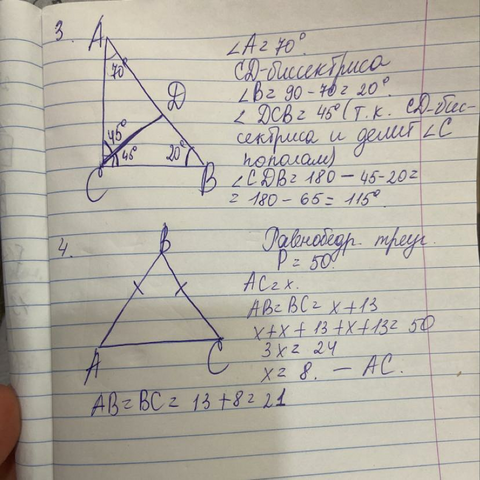 3.
A
70°
D
45°
45°
20°
C
B
∠A = 70°
CD-биссектриса
∠B = 90 - 70 = 20°
∠DCB = 45° (т.к. CD-бис-
сектриса и делит ∠C
пополам)
∠CDB = 180 - 45 - 20 =
= 180 - 65 = 115°
4.
B
A
C
Равнобедр. треуг.
P = 50
AC = x.
AB = BC = x + 13
x + x + 13 + x + 13 = 50
3x = 24
x = 8. - AC.
AB = BC = 13 + 8 = 21